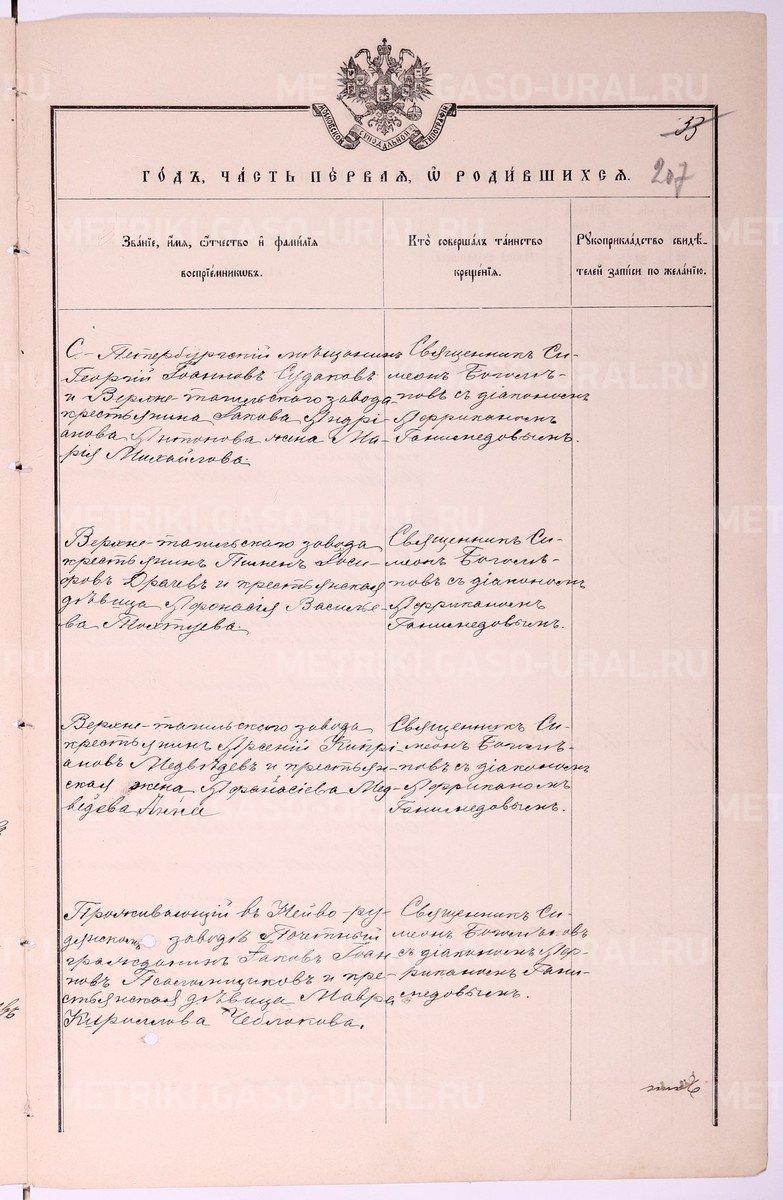 МОСКОВСКОЙ СѴНОДАЛЬНОЙ ТИПОГРАФІИ
33
207
ГО́ДЪ, ЧА́СТЬ ПЕ́РВАЯ, Ѡ҆ РОДИ́ВШИХСЯ.
Зва́ніе, и҆́мя, ѻ҆́тчество и҆ фами́лія
воспріе́мниковъ.
Кто̀ соверша́лъ та́инство
креще́нія.
Рꙋкоприкла́дство свидѣ́-
телей за́писи по жела́нію.
С.-Петербургскій мѣщанинъ
Георгій Іоанновъ Судаковъ
и Верхне-тагильскаго завода
крестьянина Іакова Андрі-
анова Антонова жена Ма-
рія Михайлова.
Священникъ Си-
меонъ Боголѣ-
повъ съ діакономъ
Африканомъ
Ганимедовымъ.
Верхне-тагильскаго завода
крестьянинъ Пименъ Іоси-
фовъ Драчевъ и крестьянская
дѣвица Афонасія Василье-
ва Тохтуева.
Священникъ Си-
меонъ Боголѣ-
повъ съ діакономъ
Африканомъ
Ганимедовымъ.
Верхне-тагильскаго завода
крестьянинъ Арсеній Кипрі-
ановъ Медвѣдевъ и крестьян-
ская жена Афонасіева Мед-
вѣдева Анна
Священникъ Си-
меонъ Боголѣ-
повъ съ діакономъ
Африканомъ
Ганимедовымъ.
Проживающій въ Нейво-ру-
дянскомъ заводѣ Почетный
гражданинъ Іаковъ Іоан
новъ Псаломщиковъ и кре-
стьянская дѣвица Мавра
Кириллова Чеблокова.
Священникъ Си-
меонъ Боголѣповъ
съ діакономъ Аф-
риканомъ Гани-
медовымъ.